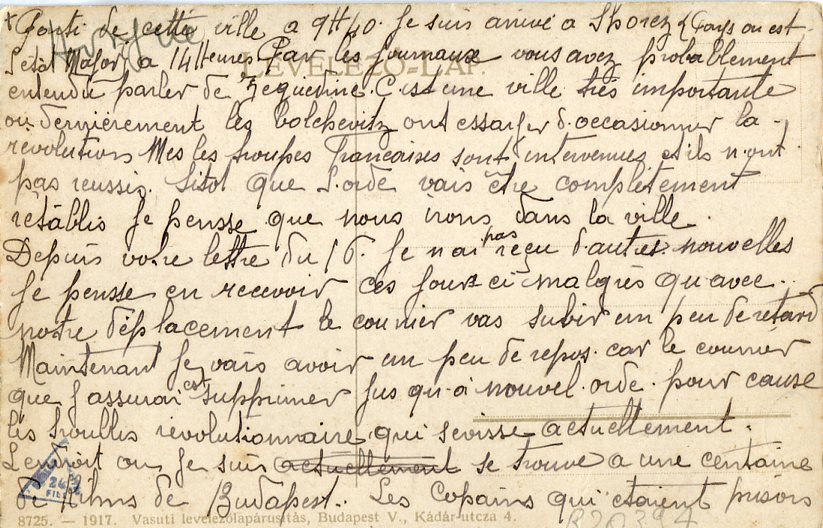 Parti de cette ville a 9H40. Je suis arrivé a Shorez (Pays ou est
l'etat Major) a 14 Heures Par les journaux vous avez probablement
LEVELEZŐ-LAP.
entendu parler de C'est une ville très importante
ou dernièrement les bolchevitz ont essayer d'occasionner la
révolution Mes les troupes Françaises sont intervenues et ils n'ont
pas reussis. Sitot que l'orde vais être complètement
rétablis Je pensse que nous irons dans la ville.
Depuis votre lettre du 16. Je n'ai pas reçu d'autres nouvelles
Je pensse en recevoir ces jours ci malgrès qu'avec
notre déplacement le courrier vas subir un peu de retard
Maintenant Je vais avoir un peu de repos. car le courrier
que j'assurai est supprimer jus qu'a nouvel orde. pour cause
les troubles révolutionnaire qui sevisse actuellement.
L'endroit ou Je suis actuellement se trouve a une centaine
de Kilms de Budapest. Les Copains qui etaient prisons
8725. — 1917. Vasuti levelezőlapárusítás, Budapest V., Kádár-utcza 4.